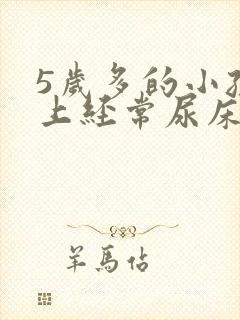 5歲多的小孩
上經常尿床
羊馬佔